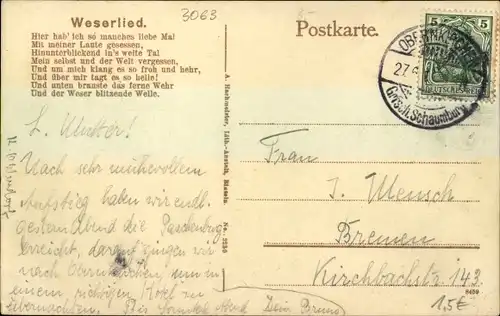 3063
Weserlied.
Hier hab' ich so manches liebe Mal
Mit meiner Laute gesessen,
Hinunterblickend in's weite Tal
Mein selbst und der Welt vergessen,
Und um mich klang es so froh und hehr,
Und über mir tagt es so helle!
Und unten brauste das ferne Wehr
Und der Weser blitzende Welle.
Postkarte.
5 5
DEUTSCHES REICH
OBERNKIRCHEN
27.
Grfsch. Schaumburg
L. Mutter!
Nach sehr mühevollem
Aufstieg haben wir endl.
gestern Abend die Paschenburg
erreicht, darauf gingen wir
nach Obernkirchen, um in
einem richtigen Hotel zu
übernachten. Bis Abend Dein Bruno
No. 3256
Frau
J. Mensch
Bremen
Kirchbachstr. 143
8459
1,5€